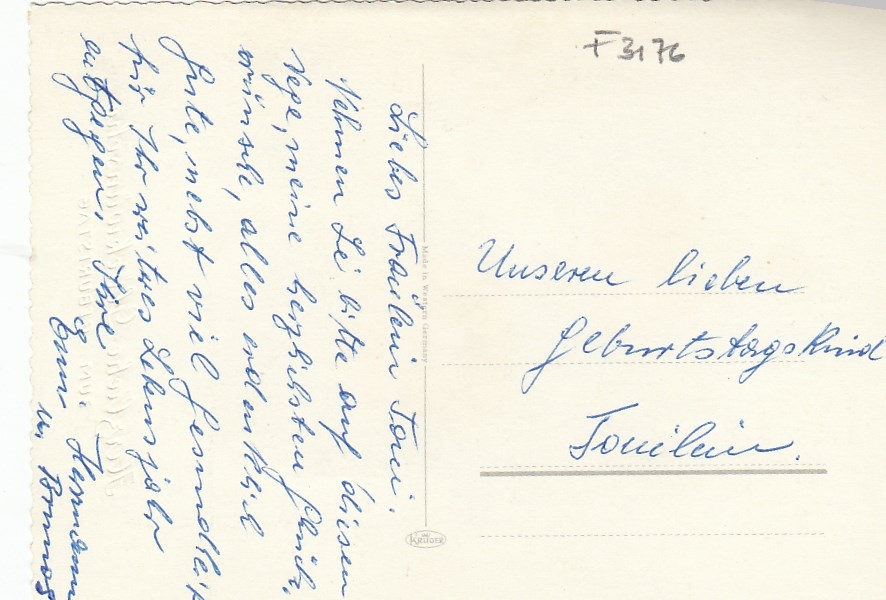 F 3176
Liebes Fräulein Toni.
Nehmen Sie bitte auf diesen
Wege, meine herzlichsten Glück,
wünsche, alles erdenklich
Gute, nebst viel Gesundheit
für Ihr weitres Lebensjahr
entgegen. Ihre
Hermann
u.
Made in Western Germany
Krüger
Unseren lieben
Geburtstagskind
Tonilein.